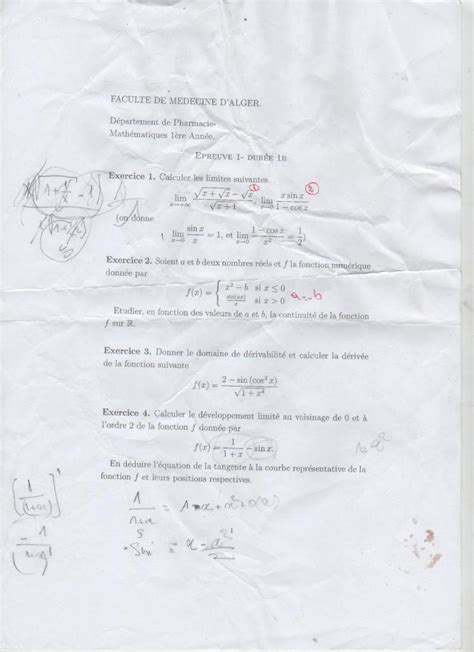 FACULTE DE MEDECINE D'ALGER.
Département de Pharmacie-
Mathématiques 1ère Année.
EPREUVE 1- DURÉE 1H
Exercice 1. Calculer les limites suivantes
lim x→+∞ (√(x + √x) − √x)/√(x + 1), lim x→0 (x sin x)/(1 − cos x)
① ②
(on donne
lim x→0 (sin x)/x = 1, et lim x→0 (1 − cos x)/x² = 1/2)
Exercice 2. Soient a et b deux nombres réels et f la fonction numérique
donnée par
f(x) = { x² − b si x ≤ 0
sin(ax)/x si x > 0
a=-b
Etudier, en fonction des valeurs de a et b, la continuité de la fonction
f sur ℝ.
Exercice 3. Donner le domaine de dérivabilité et calculer la dérivée
de la fonction suivante
f(x) = (2 − sin (cos² x))/√(1 + x⁴)
Exercice 4. Calculer le développement limité au voisinage de 0 et à
l'ordre 2 de la fonction f donnée par
f(x) = 1/(1 + x) − sin x.
En déduire l'équation de la tangente à la courbe représentative de la
fonction f et leurs positions respectives.